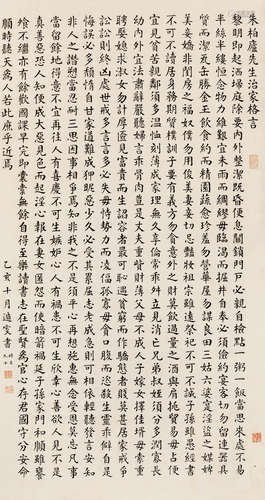 朱柏廬先生治家格言
黎明即起洒埽庭除要內外整潔既昏便息關鎖門戶必親自檢點一粥一飯當思來處不易
半絲半縷恆念物力維艱宜未雨而綢繆毋臨渴而掘井自奉必須儉約宴客切勿留連器具
質而潔瓦缶勝金玉飲食約而精園蔬愈珍羞勿營華屋勿謀良田三姑六婆實淫盜之媒婢
美妾嬌非閨房之福奴僕勿用俊美妻妾切忌豔妝祖宗雖遠祭祀不可不誠子孫雖愚經書
不可不讀居身務期質樸訓子要有義方勿貪意外之財莫飲過量之酒與肩挑貿易毋占便
宜見貧苦親鄰須多溫卹刻薄成家理無久享倫常乖舛立見消亡兄弟叔姪須分多潤寡長
幼內外宜法肅辭嚴聽婦言乖骨肉豈是丈夫重貲財薄父母不成人子嫁女擇佳壻毋索重
聘娶媳求淑女勿計厚匳見富貴而生諂容者最可恥遇貧窮而作驕態者賤莫甚居家戒爭
訟訟則終凶處世戒多言言多必失毋恃勢力而凌逼孤寡毋貪口腹而恣殺生靈乖僻自是
悔誤必多頹惰自甘家道難成狎昵惡少久必受其累屈志老成急則可相依輕聽發言安知
非人之譖愬當忍耐三思因事相爭焉知非我之不是須平心再想施惠無念受恩莫忘凡事
當留餘地得意不宜再往人有喜慶不可生嫉妒心人有禍患不可生欣幸心善欲人見不是
真善惡恐人知便成大惡見色而起淫心報在妻女匿怨而使暗箭禍延子孫家門和順雖饔
飧不繼亦有餘歡國課早完即囊橐無餘自得至樂讀書志在聖賢為官心存君國守分安命
順時聽天為人若此庶乎近焉
乙亥十月遁叟書